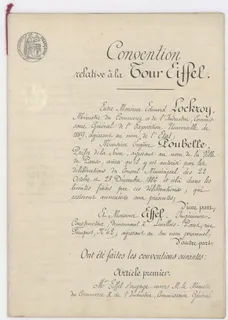 Convention
relative à la Tour Eiffel.
Entre Monsieur Edouard Lockroy,
Ministre du Commerce et de l'Industrie, Commis-
saire Général de l'Exposition Universelle de
1889, agissant au nom de l'Etat,
Monsieur Eugène Poubelle,
Préfet de la Seine, agissant au nom de la Ville
de Paris, ainsi qu'il y est autorisé par les
délibérations du Conseil Municipal des 22
Octobre et 23 Décembre 1886 et cela dans les
limites fixées par ces délibérations, qui
resteront annexées aux présentes;
D'une part,
Et Monsieur Eiffel, Ingénieur-
Constructeur demeurant à Levallois-Perret, rue
Fouquet, N° 42, agissant en son nom personnel,
D'autre part,
Ont été faites les conventions suivantes:
Article premier.
Mr. Eiffel s'engage envers M. le Ministre
du Commerce & de l'Industrie, Commissaire Général